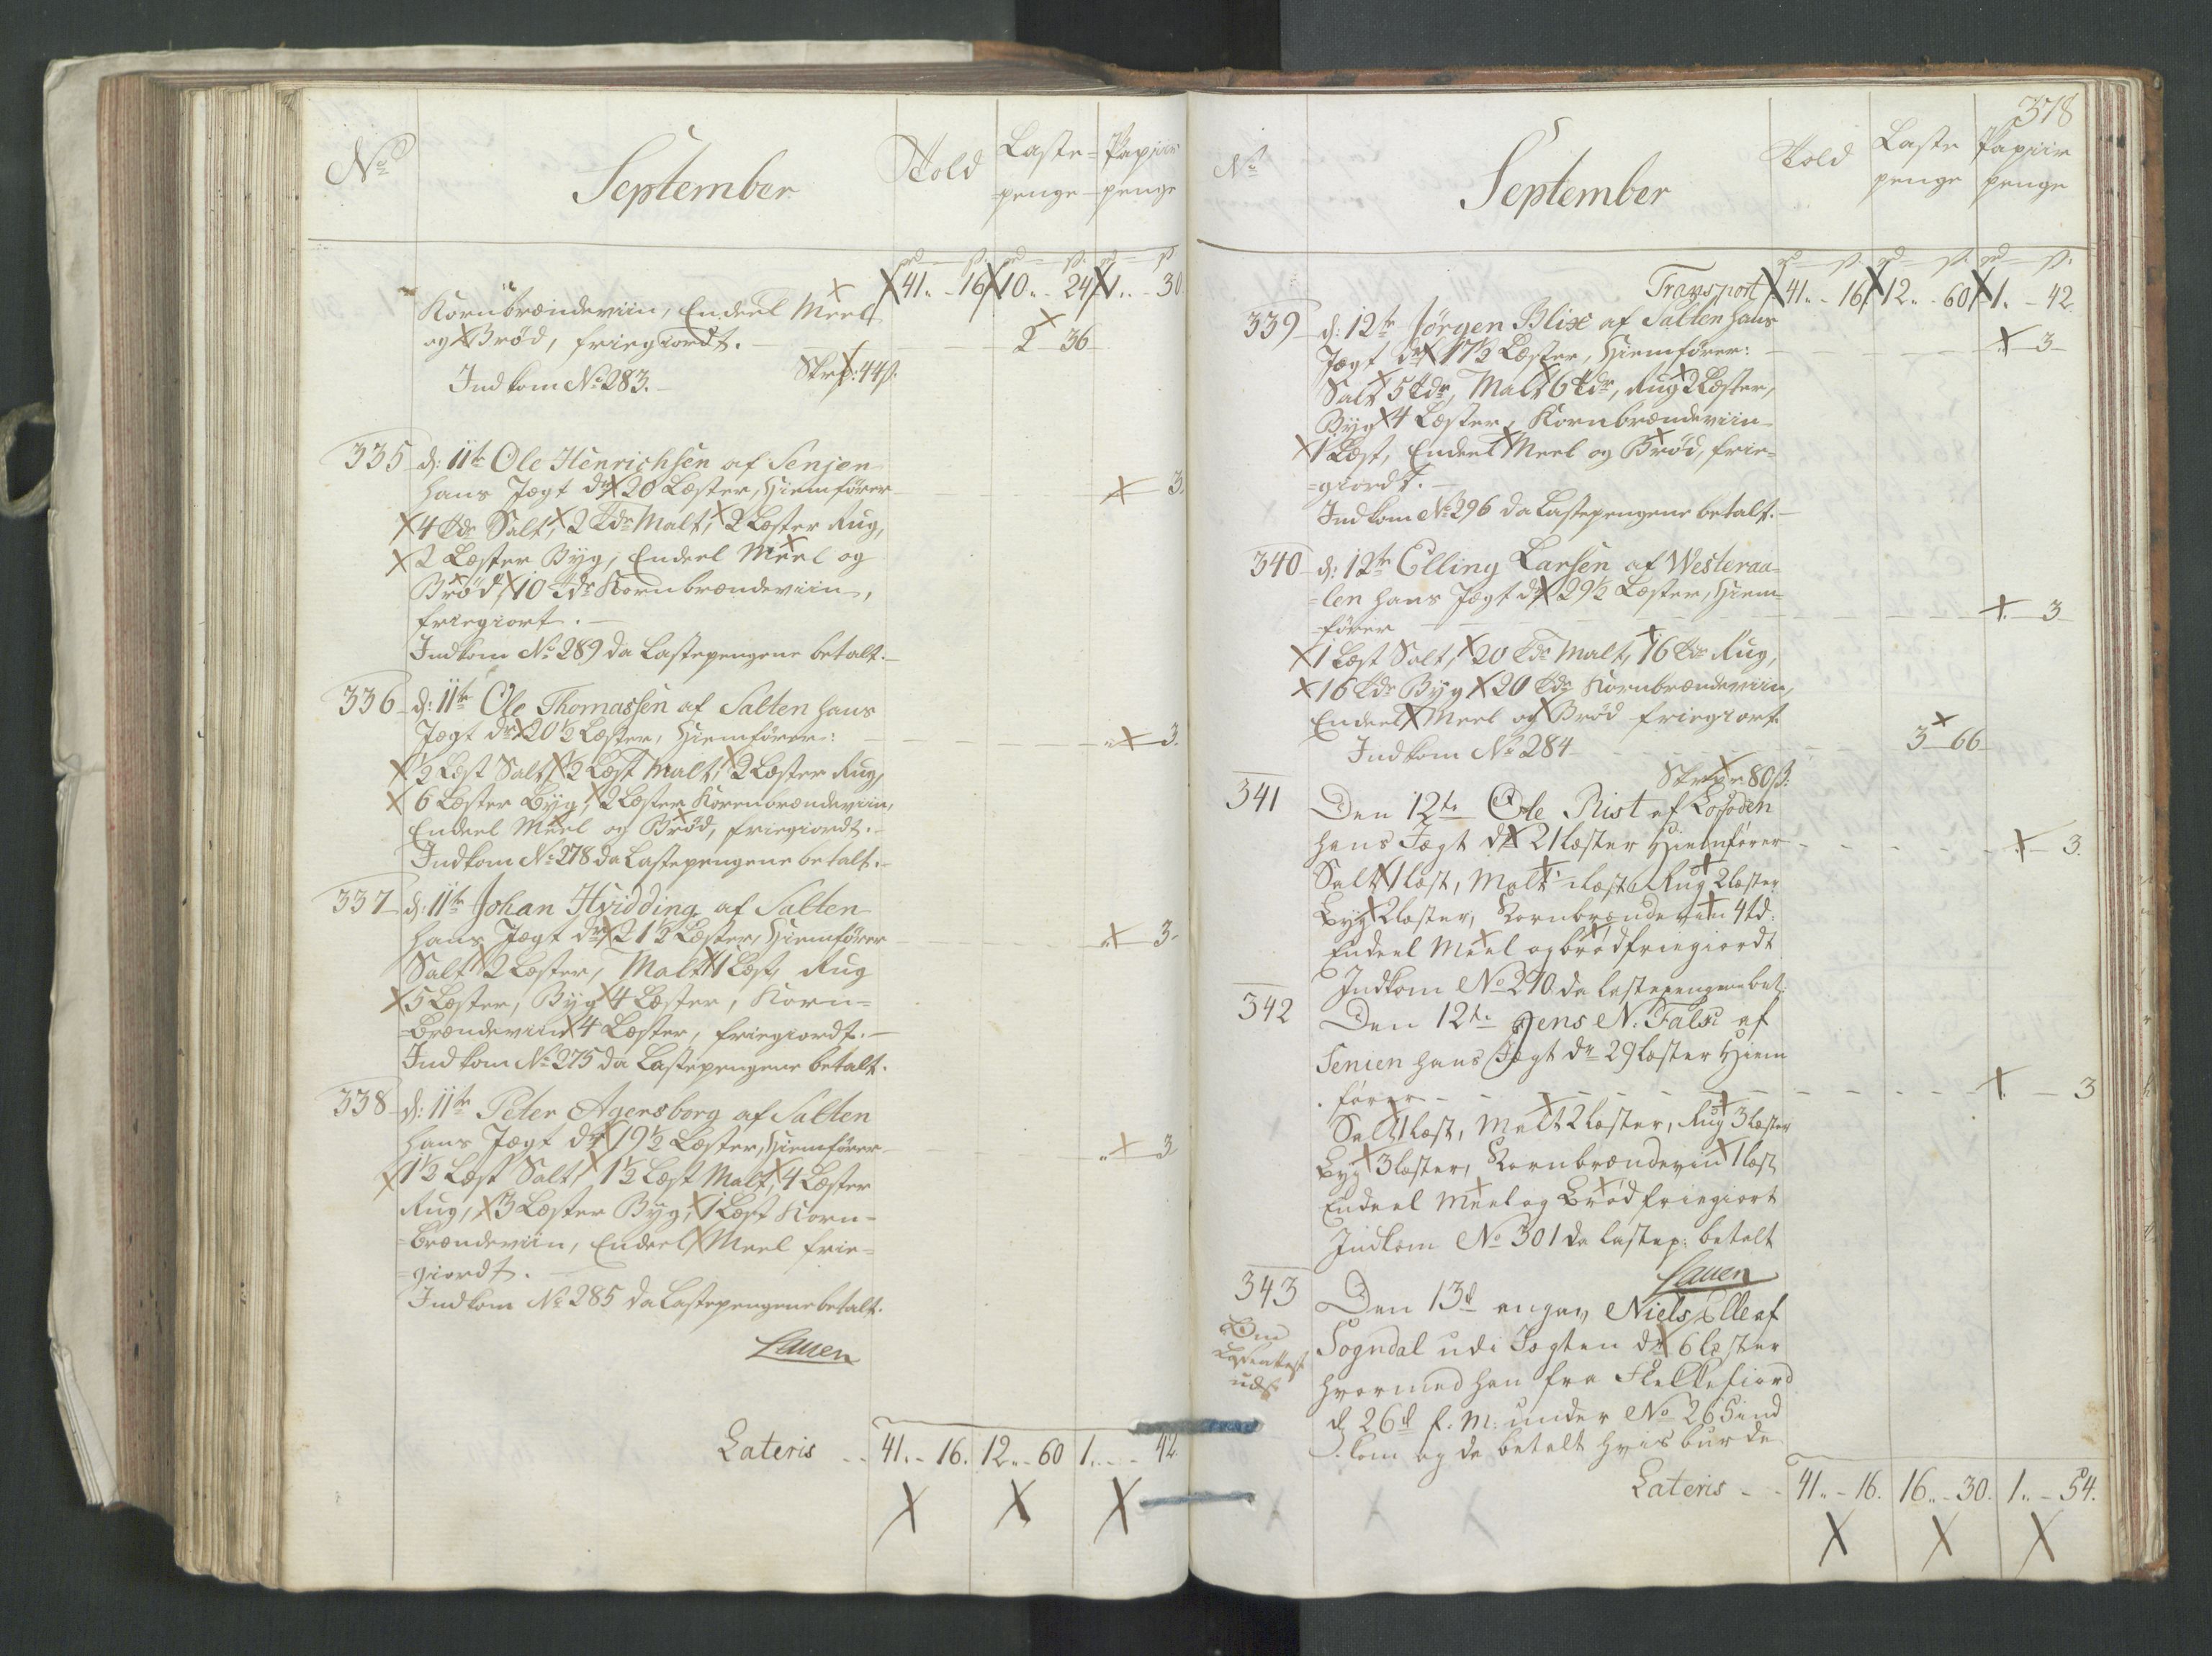 No
September
Told
Laste-
penge
Papiir
penge
rd ß rd ß rd ß
41.. - 16 10.. - 24 1.. - 30
Kornbrændeviin, Endeel Meel
og Brød, friegiordt.
2 36
Indkom No 283.
Skrp: 44 ß.
335 d: 11te Ole Henrichsen af Senjen
hans Jægt dr 20 Læster, Hiemfører 3.
4 tdr Salt, 2 tdr Malt, 2 Læster Rug,
2 Læster Byg, Endeel Meel og
Brød, 10 tdr Kornbrændeviin,
friegiort.
Indkom No 289 da Lastepengene betalt.
336 d: 11te Ole Thomassen af Salten hans
Jægt dr 20½ Læster, Hiemfører: 3.
½ Læst Salt, ½ Læst Malt, 2 Læster Rug,
6 Læster Byg, 2 Læster Kornbrændeviin,
Endeel Meel og Brød, friegiordt.
Indkom No 278 da Lastepengene betalt.
337 d: 11te Johan Hvidding af Salten
hans Jægt dr 21½ Læster, Hiemfører 3.
Salt 2 Læster, Malt 1 Læst, Rug
5 Læster, Byg 4 Læster, Korn=
=Brændeviin 4 Læster, friegiordt.
Indkom No 275 da Lastepengene betalt.
338 d: 11te Peter Agersborg af Salten
hans Jægt dr 19½ Læster, Hiemfører 3
1½ Læst Salt, 1½ Læst Malt, 4 Læster
Rug, 3 Læster Byg, 1 Læst Korn=
=brændeviin, Endeel Meel frie=
=giordt.
Indkom No 285 da Lastepengene betalt.
Lauen
Lateris - - 41.. - 16. 12.. - 60 1.. - 42.
378
No
September
Told
Laste
penge
Papiir
penge
rd ß. rd ß. rd ß.
Transport 41.. - 16 12.. - 60 1.. - 42.
339 d: 12te Jørgen Blix af Salten hans
Jægt dr 17½ Læster, Hiemfører: 3
Salt 5 tdr, Malt 6 tdr, Rug 2 Læster,
Byg 4 Læster, Kornbrændeviin
1 Læst, Endeel Meel og Brød, frie=
=giordt.
Indkom No 296 da Lastepengene betalt.
340 d: 12te Elling Larsen af Westeraa=
=len hans Jægt dr 29½ Læster, Hiem=
=fører 3
1 Læst Salt, 20 tdr Malt, 16 tdr Rug,
16 tdr Byg 20 tdr Kornbrændeviin,
Endeel Meel og Brød friegiort.
Indkom No 284 3 66
Skrpr 80 ß:
341 Den 12te Ole Rist af Lofoden
hans Jægt dr 21 læster Hiemfører 3.
Salt 1 læst, Malt 1 læst, Rug 2 læster
Byg 2 læster, Kornbrændeviin 4 td:
Endeel Meel og brød friegiordt
Indkom No 290 da lastepengene bet:
342 Den 12te Jens N. Falsi af
Senien hans Jægt dr 29 læster Hiem
fører - - 3
Salt 1 læst, Malt 2 læster, Rug 3 læster
Byg 3 læster, Kornbrændeviin 1 læst
Endeel Meel og Brød friegiort
Indkom No 301 da lastep: betalt
Lauen
343 Den 13d angav Niels Elle af
Sogndal udi Jagten dr 6 læster
hvormed han fra Fleckefiord
d 26d f. M: under No 265 ind
kom og da betalt hvis burde
Lateris - - 41.. - 16. 16.. - 30. 1.. - 54.